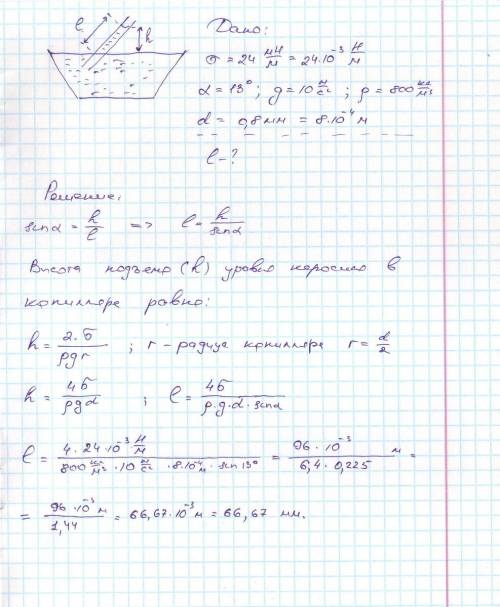 l
h
Дано:
σ = 24 мН/м = 24·10⁻³ Н/м
α = 13°; g = 10 м/с²; ρ = 800 кг/м³
d = 0,8 мм = 8·10⁻⁴ м
l - ?
Решение:
sinα = h/l => l = h/sinα
Высота подъема (h) уровня керосина в
капилляре равно:
h = 2·σ/ρgr ; r - радиус капилляра r = d/2
h = 4σ/ρgd ; l = 4σ/ρ·g·d·sinα
l = 4·24·10⁻³ Н/м / 800 кг/м³ · 10 м/с² · 8·10⁻⁴ м · sin 13° = 96·10⁻³ / 6,4·0,225 м =
= 96·10⁻³ м / 1,44 = 66,67·10⁻³ м = 66,67 мм.